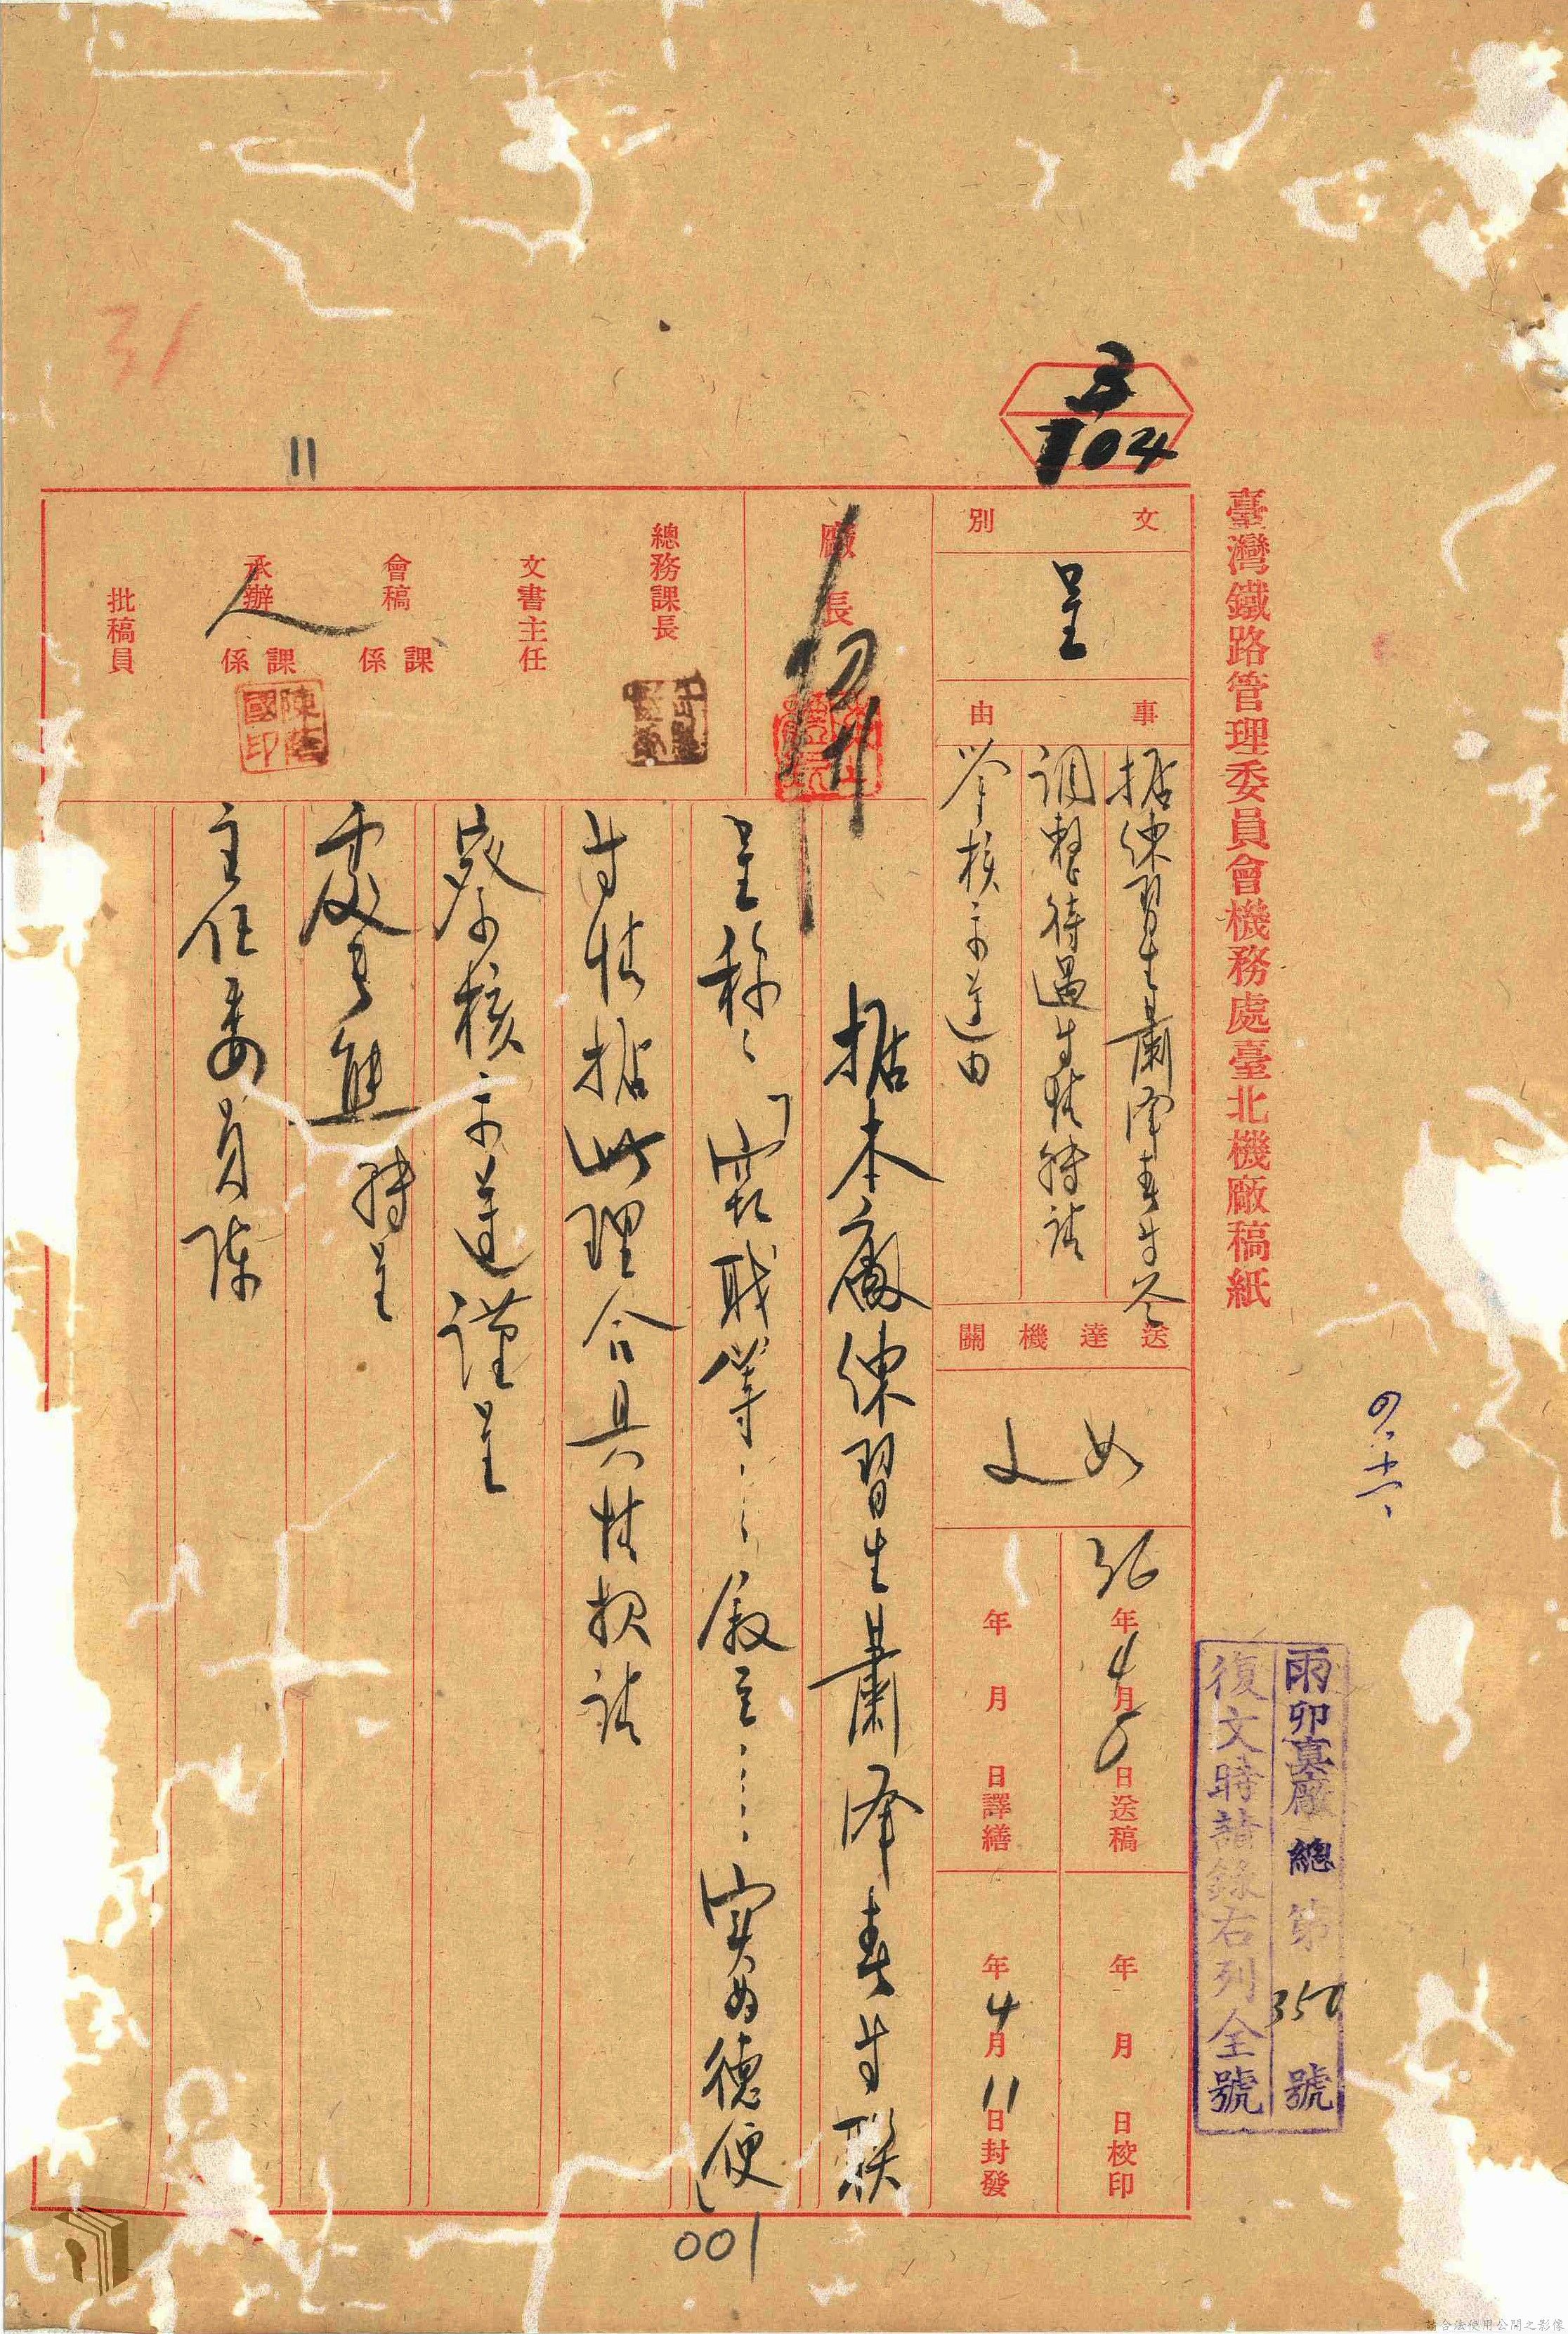 四、十一、
雨卯真廠總第350號
復文時請錄右列全號
臺灣鐵路管理委員會機務處臺北機廠稿紙
3
104
文別
呈
事由
据練習生蕭澤春等呈
調整待遇等情轉請
鑒核示遵由
送達機關
如文
36年4月5日送稿
年月日譯繕
年月日校印
年4月11日封發
廠長
總務課長
文書主任
會稿 課係
承辦 課係
人
陳
國印
批稿員
据本廠練習生蕭澤春等聯
呈稱:「竊職等……敘至……實為德便」
等情据此理合具情報請
察核示遵謹呈
處長熊 轉呈
主任委員陳
31
11
001
請合法使用公開之影像